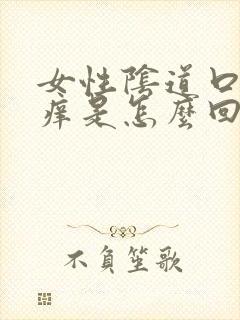 女性陰道口
痒是怎麼回
不負笙歌